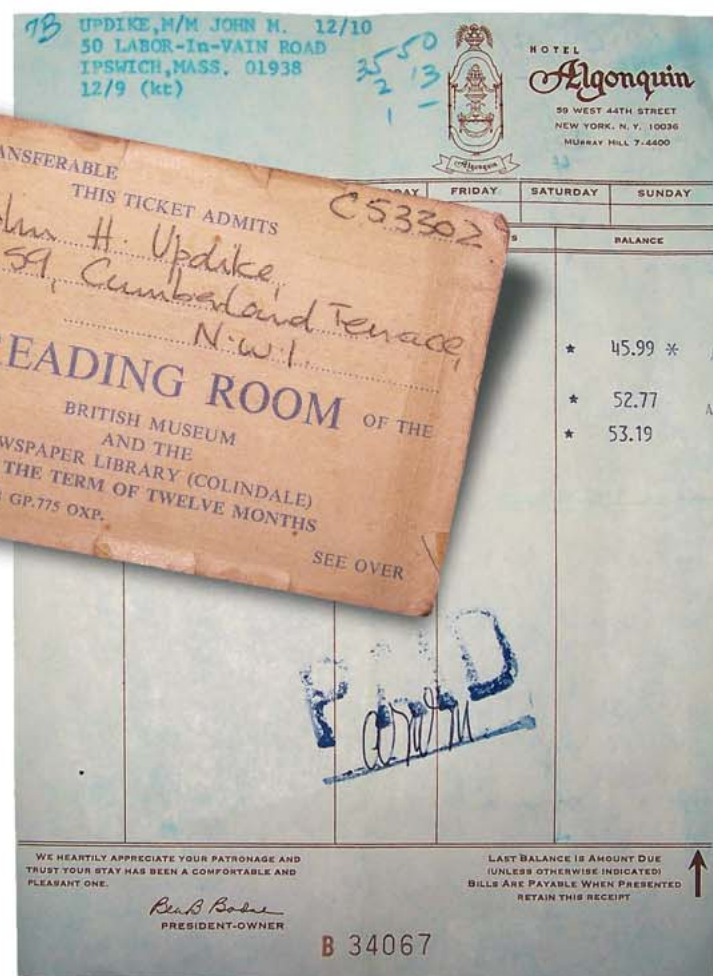 7B UPDIKE, M/M JOHN M. 12/10
50 LABOR-In-VAIN ROAD
IPSWICH, MASS. 01938
12/9 (kt)
35 50
2 13
1 —
HOTEL
Algonquin
59 WEST 44TH STREET
NEW YORK, N. Y. 10036
MURRAY HILL 7-4400
Algonquin
DAY FRIDAY SATURDAY SUNDAY
S BALANCE
★ 45.99 *
★ 52.77
★ 53.19
ANSFERABLE
THIS TICKET ADMITS
C53302
ohn H. Updike,
59, Cumberland Terrace,
N.W.1.
READING ROOM OF THE
BRITISH MUSEUM
AND THE
WSPAPER LIBRARY (COLINDALE)
THE TERM OF TWELVE MONTHS
GP.775 OXP.
SEE OVER
PAID
WE HEARTILY APPRECIATE YOUR PATRONAGE AND
TRUST YOUR STAY HAS BEEN A COMFORTABLE AND
PLEASANT ONE.
PRESIDENT-OWNER
LAST BALANCE IS AMOUNT DUE
(UNLESS OTHERWISE INDICATED)
BILLS ARE PAYABLE WHEN PRESENTED
RETAIN THIS RECEIPT
B 34067